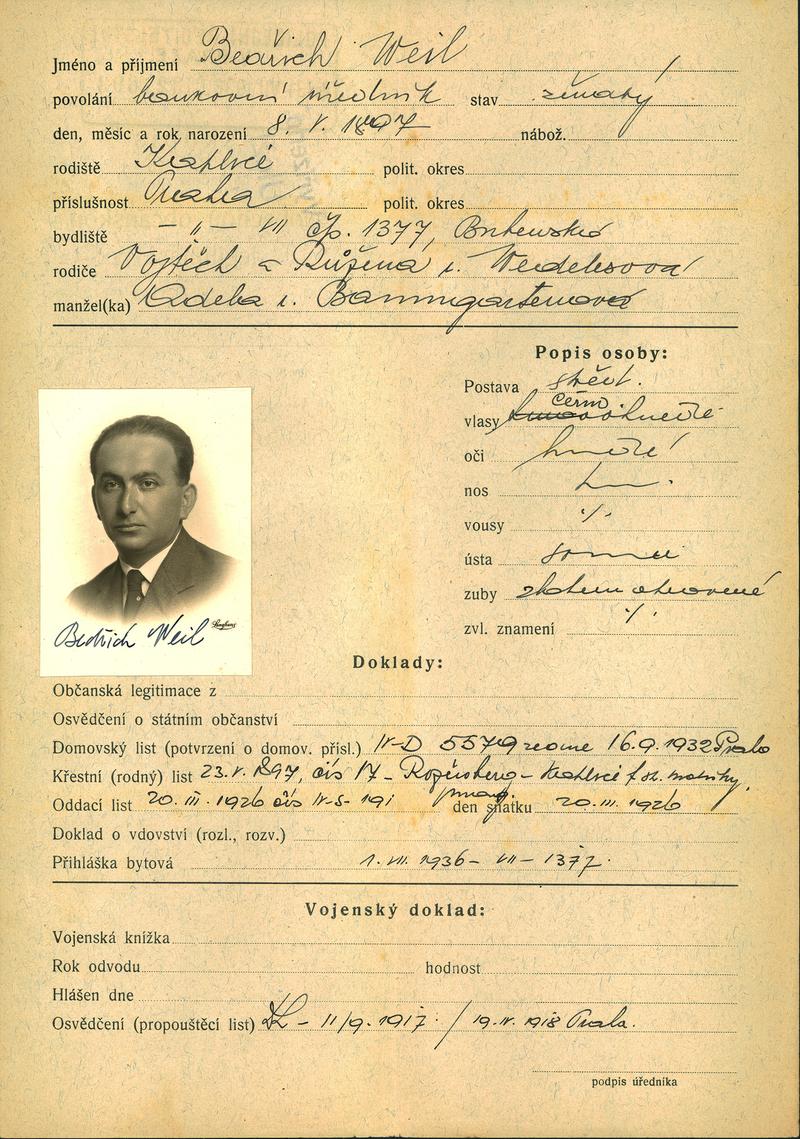 Jméno a příjmení Bedřich Weil
povolání bankovní úředník stav ženatý
den, měsíc a rok narození 8. V. 1897 nábož.
rodiště polit. okres
příslušnost Praha polit. okres
bydliště – " – VII čp. 1377,
rodiče Vojtěch a Růžena r.
manžel(ka) Adela r. Baumgartenová
Popis osoby:
Postava střed.
vlasy černo
oči hnědé
nos
vousy ./.
ústa
zuby zlatem
zvl. znamení ./.
Bedřich Weil
Langhans
Doklady:
Občanská legitimace z
Osvědčení o státním občanství
Domovský list (potvrzení o domov. přísl.) IV-D 5579 16.9.1932 Praha
Křestní (rodný) list 23.V.1897, čís 17 - matriky,
Oddací list 20.III.1926 čís IV-S-191 den sňatku 20.III.1926
Doklad o vdovství (rozl., rozv.)
Přihláška bytová 1.VII.1936 - VII - 1377.
Vojenský doklad:
Vojenská knížka
Rok odvodu hodnost
Hlášen dne
Osvědčení (propouštěcí list) - 11/9.1917. / 19.IV.1918 Praha.
podpis úředníka